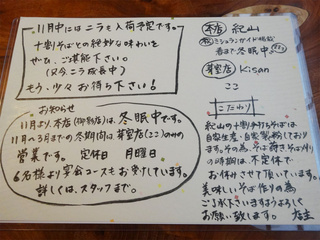 11月中にはニラも入荷予定です。
十割そばとの絶妙な味わいを
ぜひ、ご堪能下さい。
(只今、ニラ成長中)
もう少々お待ち下さい!
お知らせ
11月より、本店(御影店)は、冬眠中です。
11月〜3月までの冬期間は芽室店(ここ)のみの
営業です。 定休日 月曜日
6名様より宴会コースもお受けしています。
詳しくは、スタッフまで。
本店 紀山
ミシュランガイド掲載
春まで冬眠中
芽室店 Kisan
ここ
こだわり
紀山の十割手打ちそばは
自家生産・自家製粉しており
ます。その為、そば蒔きそば刈り
の時期は、不定休で
お休みさせて頂いています。
美味しいそば作りの為
ご了承下さいますようよろしく
お願い致します。 店主